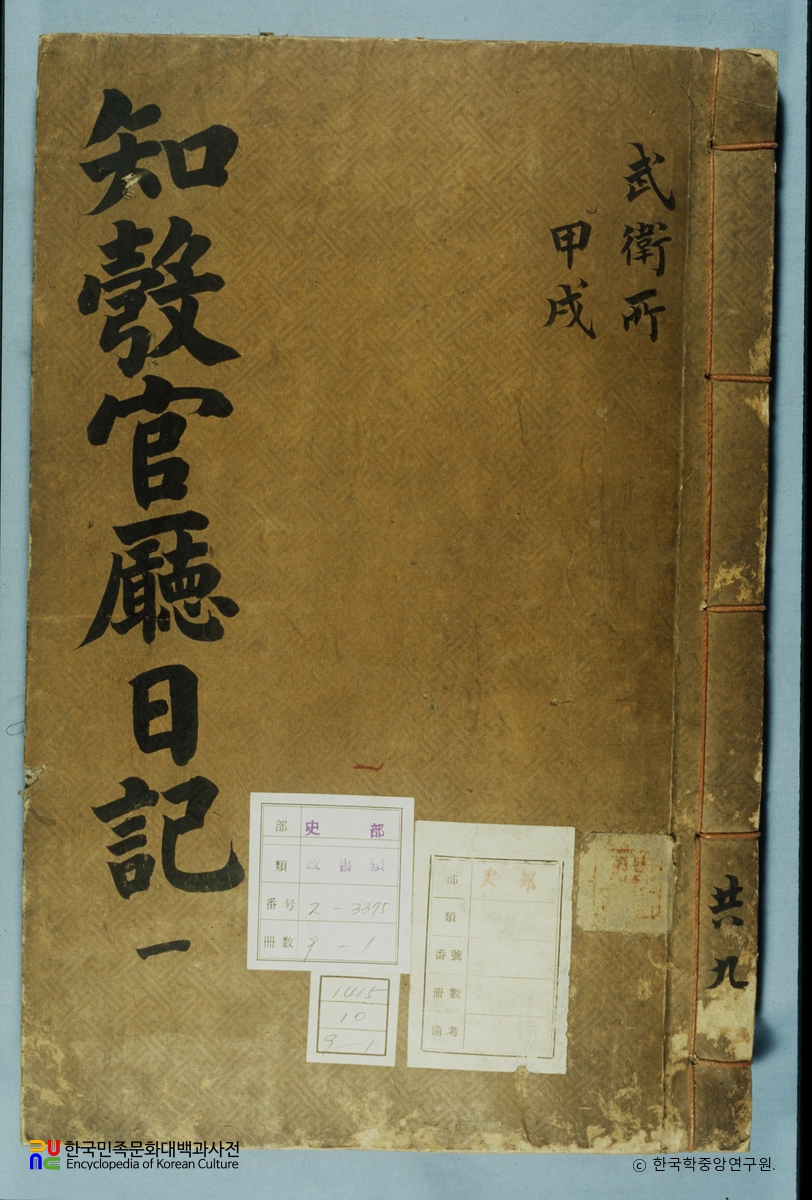 武衛所
甲戌
知彀官廳日記 一
共九
部 史部
類 政書類
番号 2-3395
冊数 9-1
1415
10
9-1
部 史部
類
番號
冊數
備考
한국민족문화대백과사전
Encyclopedia of Korean Culture
ⓒ 한국학중앙연구원.